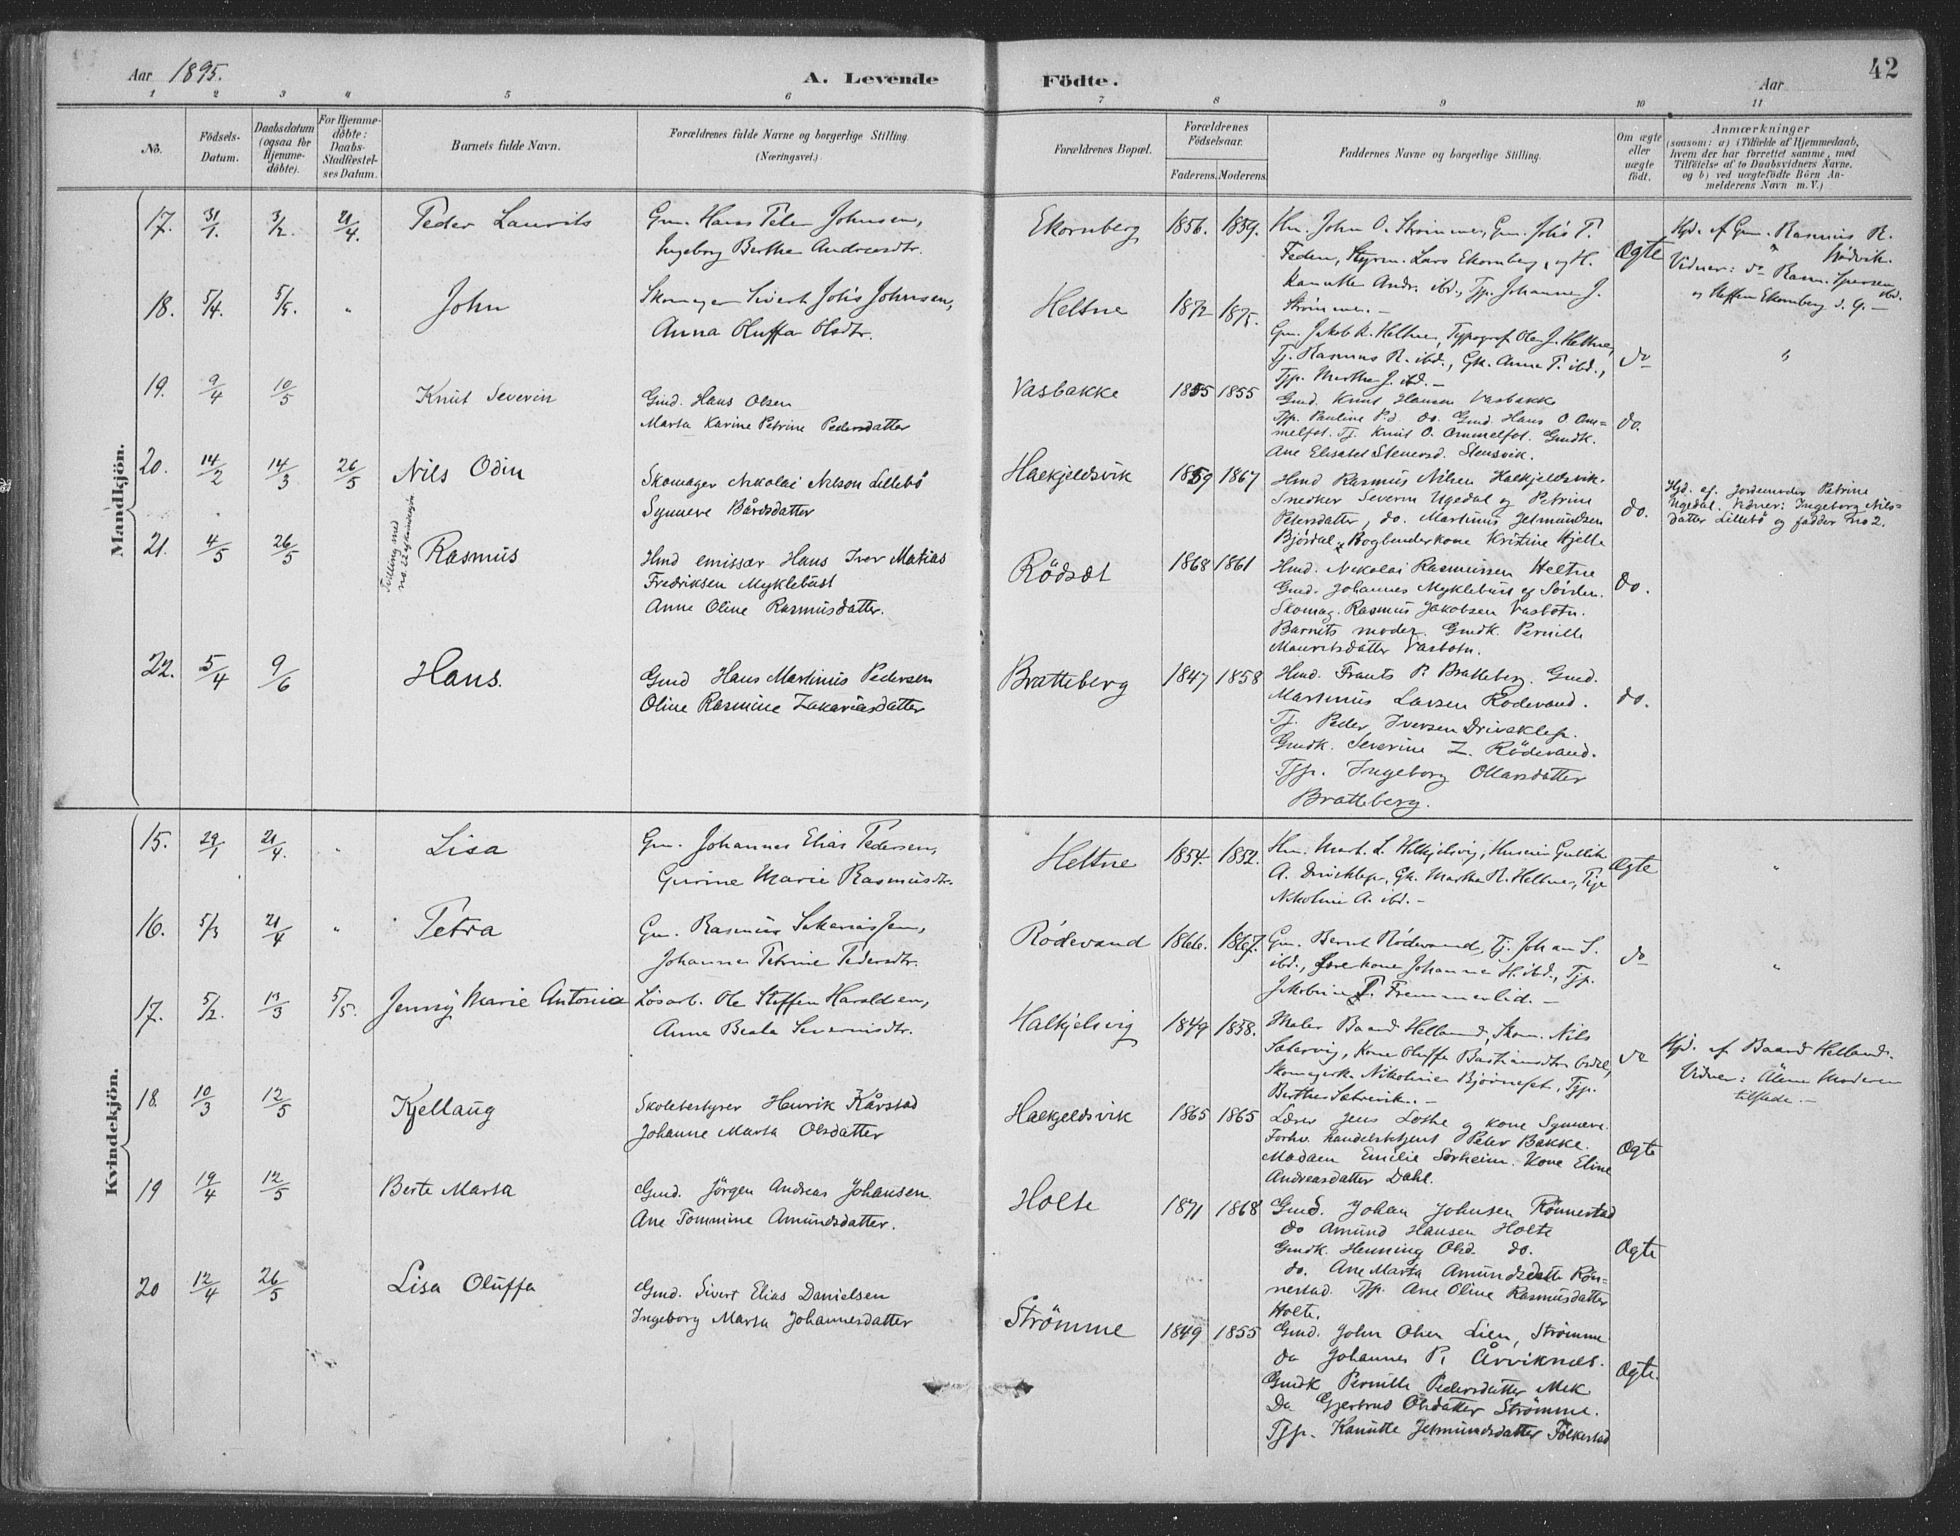 Aar 1895.
A. Levende Födte.
Aar
42
1 2 3 4 5 6 7 8 9 10 11
No.
Födsels-Datum.
Daabsdatum (ogsaa for Hjemmedöbte).
For Hjemmedöbte: Daabs-Stadfæstelses Datum.
Barnets fulde Navn.
Forældrenes fulde Navne og borgerlige Stilling. (Næringsvei.)
Forældrenes Bopæl.
Forældrenes Födselsaar.
Faderens. Moderens.
Faddernes Navne og borgerlige Stilling.
Om ægte eller uægte födt.
Anmærkninger
(saasom: a) i Tilfælde af Hjemmedaab, hvem der har forrettet samme, med Tilföielse af to Daabsvidners Navne, og b) ved uægtefödte Börn Anmelderens Navn m. V.)
Mandkjön.
17. 31/1 3/2 21/4 Peder Laurits
Gm. Hans Peter Johnsen,
Ingeborg Berthe Andreasdtr.
Ekornberg 1856. 1859.
Hm. John O. Strømme, Gm. Johs P.
Feden, Styrm. Lars Ekornberg, og H.
Kanutte Andr. ibd., Tjp. Johanne J.
Strömme. –
Ægte
Hjd. af Gm. Rasmus R.
Hødvik.
Vidner: do Rasm. Iversen ibd.
og Steffen Ekornberg d. G. –
18. 5/4. 5/5. " John
Skomager Sivert Johs Johnsen,
Anna Oluffa Olsdtr.
Heltne 1872 1875.
Gm. Jakob K. Heltne, Typograf Ole J. Heltne,
Tj. Rasmus R. ibd., Gk. Anne P. ibd.,
Tjp. Marthe J. ibd. –
do "
19. 9/4 10/5 Knut Severin
Gmd. Hans Olsen
Marta Karine Petrine Pedersdatter
Vasbakke 1855 1855
Gmd. Knut Hansen Vasbakke
Tjp. Pauline P.d do. Gmd. Hans O. Om-
melfot. Tj. Knut O. Ommelfot. Gmdk.
Ane Elisabet Stenersd. Stensvik.
do.
20. 14/2 14/3 26/5 Nils Odin
Skomager Nikolai Nilson Lillebö
Synneve Bårdsdatter
Halkjeldsvik 1859 1867
Hmd Rasmus Nilsen Halkjeldsvik.
Snedker Severin Ugedal og Petrine
Petersdatter, do. Martinus Jetmundsen
Björdal, Bogbinderkone Kristine Hjelle
do.
Hjd. af Jordemoder Petrine
Ugedal. Vidner: Ingeborg Nils-
datter Lillebö og fadder no 2.
21. 4/5 26/5 Rasmus
Tvilling med
no. 22
Hmd emissær Hans Iver Matias
Fredriksen Myklebust
Anne Oline Rasmusdatter.
Rödset 1868 1861
Hmd. Nikolai Rasmussen Heltne
Gmd. Johannes Myklebust og Sörden.
Skomag. Rasmus Jakobsen Vasbotn.
Barnets moder. Gmdk. Pernille
Mauritsdatter Vasbotn.
do.
22. 5/4 9/6 Hans.
Gmd Hans Martinus Pedersen
Oline Rasmine Zakariasdatter
Bratteberg 1847 1858
Hmd. Frants P. Bratteberg. Gmd.
Martinus Larsen Rödevand.
Tj. Peder Iversen Driveklep.
Gmdk. Severine Z. Rödevand.
Tjp. Ingeborg Olarsdatter
Bratteberg.
do.
Kvindekjön.
15. 29/1 21/4. " Lisa
Gm. Johannes Elias Pedersen,
Gurine Marie Rasmusdtr.
Heltne 1854. 1852.
Hm. Mart. L. Halkjelsvig, Huseier Gullik
A. Driveklep, Gk. Marthe R. Heltne, Tje
Nikoline A. ibd. –
Ægte "
16. 5/3 21/4 " Petra
Gm. Rasmus Sakariassen,
Johanne Petrine Pedersdtr.
Rödevand 1866. 1867.
Gm. Bernt Rödevand, Tj. Johan S.
ibd., kone Johanne H. ibd., Tjp.
Jakobine P. Fremmerlid. –
do "
17. 5/2. 13/3 5/5. Jenny Marie Antonie
Løsarb. Ole Steffen Haraldsen,
Anne Beate Severinsdtr.
Halkjelsvig 1849 1858.
Maler Baard Helland, Skom. Nils
Sætervig, Kone Oluffa Bastiansdtr Osdal,
Skomagerk. Nikoline Bjørneset, Tjp.
Berthe Sætrevik. –
do
Hjd. af Baard Helland.
Vidner: Alene Moderen
tilstede. –
18. 10/3 12/5 Kjellaug
Skolebestyrer Henrik Kårstad
Johanne Marta Olsdatter
Halkjeldsvik 1865 1865
Lærer Jens Lothe og kone Synneve.
Forhv. handelsbetjent Peter Bakke.
Madam Emilie Sørheim. Kone Eline
Andreasdatter Dahl.
Ægte
19 19/4 12/5 Berte Marta
Gmd. Jörgen Andreas Johansen.
Ane Tommine Amundsdatter.
Holte 1871 1868
Gmd. Johan Johnsen Rönnestad
do Amund Hansen Holte
Gmdk. Henning Olsd. do.
do. Ane Marta Amundsdatte Rön-
nestad. Tjp. Ane Oline Rasmusdatter
Holte.
Ægte
20 12/4 26/5 Lisa Oluffa
Gmd. Sivert Elias Danielsen
Ingeborg Marta Johannesdatter
Strömme 1849 1855
Gmd. John Olsen Lien, Strömme
do Johannes P. Årviknes.
Gmdk Pernille Pedersdatter Mek
Do Gjertrud Olsdatter Strömme.
Tjp. Kanutte Jetmundsdatter Folkestad
Ægte.